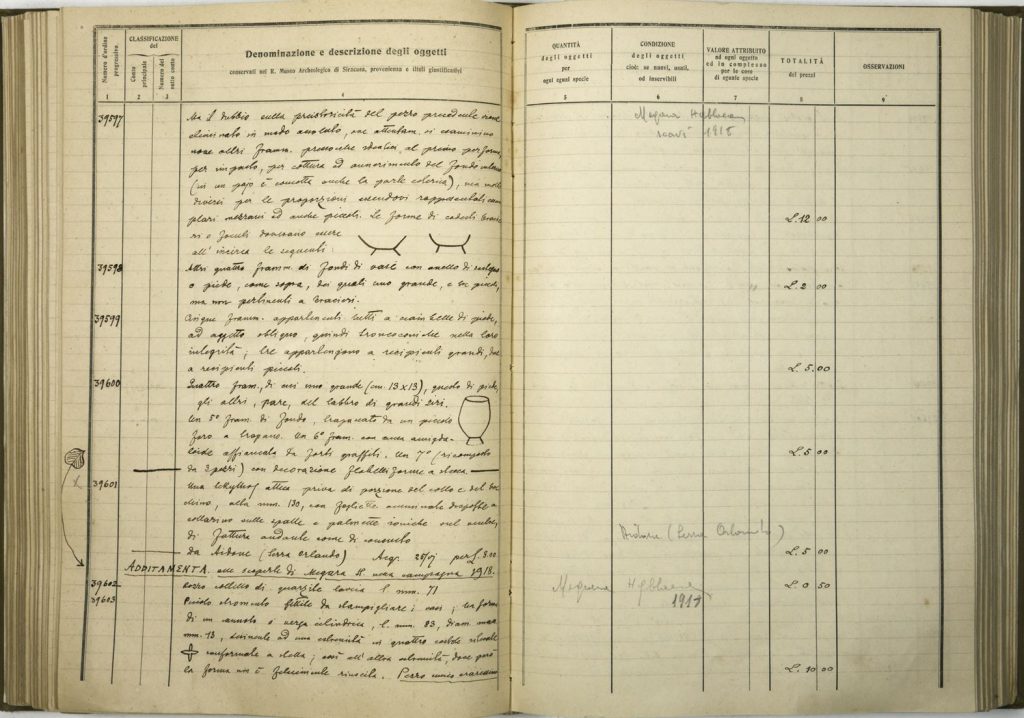 Numero d'ordine progressivo.
CLASSIFICAZIONE del
Conto principale
Numero del sotto conto
Denominazione e descrizione degli oggetti
conservati nel R. Museo Archeologico di Siracusa, provenienza e titoli giustificativi
1 2 3 4
39597 Ma il dubbio sulla preistoricità del pezzo precedente viene
eliminato in modo assoluto, ove attentam. si esaminino
nove altri framm. pressochè identici al primo per forma,
per impasto, per cottura ed annerimento del fondo interno
(in un pajo è concotta anche la parte esterna), ma molto
diversi per le proporzioni essendovi rappresentati esem-
plari mezzani ed anche piccoli. Le forme di codesti bracie-
ri o focoli dovevano essere
all'incirca le seguenti:
39598 Altri quattro framm. di fondi di vasi con anello di sostegno
o piede, come sopra, dei quali uno grande, e tre piccoli,
ma non pertinenti a bracieri.
39599 Cinque framm. appartenenti tutti a
ad aspetto obliquo, quindi troncoconiche nella loro
integrità; tre appartengono a recipienti grandi, due
a recipienti piccoli.
39600 Quattro fram., di cui uno grande (cm. 13x13), quello di piede,
gli altri, pare, del labbro di grandi ziri.
Un 5° fram. di fondo, trapanato da un piccolo
foro a trapano. Un 6° fram. con ansa amigda-
loide affiancata da forti graffiti. Un 7° (ricomposto
da 3 pezzi) con decorazione flabelliforme a stecca.
39601 Una lekythos attica priva di porzione del collo e del boc-
chino, alta mm. 130, con foglie
collarino sulle spalle e palmette ioniche sul ventre,
di fattura andante come di consueto
da Aidone (Serra Orlando) Acq. per L. 3.00
ADDITAMENTA alle scoperte di Megara H. nella campagna 1918.
39602 coltello di quarzite l. mm. 71
39603 Piccolo strumento fittile da stampigliare i vasi; ha forma
di un o verga cilindrica, l. mm. 83, diam. mass.
mm. 13, ad una estremità in quattro costole rilevate
conformate a stella; così all'altra estremità, dove però
la forma non è felicemente riuscita. Pezzo unico
QUANTITÀ degli oggetti per ogni egual specie
CONDIZIONE degli oggetti cioè: se nuovi, usati, od inservibili
VALORE ATTRIBUITO ad ogni oggetto ed in complesso per le cose di eguale specie
TOTALITÀ dei prezzi
OSSERVAZIONI
5 6 7 8 9
Megara Hyblaea
scavi 1918
L. 12 00
" L. 2 00
L. 5.00
L. 5 00
Aidone (Serra Orlando)
L. 5 00
Megara Hyblaea
1918
L. 0 50
L. 10 00